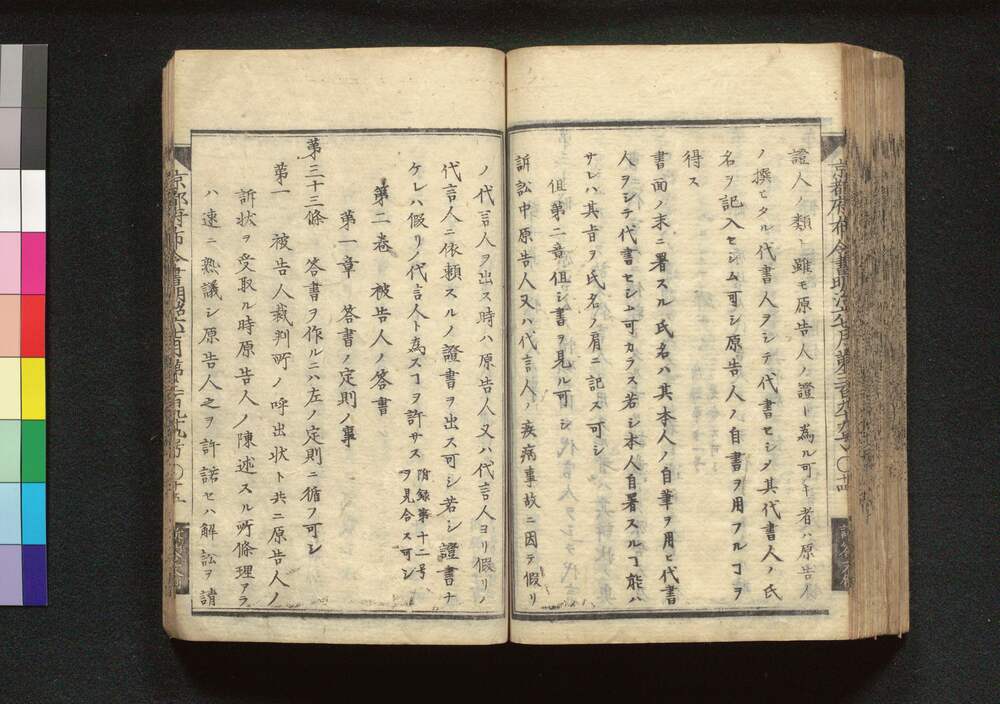 證人ノ類ト雖モ原告人ノ證ト為ル可キ者ハ原告人
ノ撰ヒタル代書人ヲシテ代書セシメ其代書人ノ氏
名ヲ記入セシム可シ原告人ノ自書ヲ用フルヿヲ
得ス
書面ノ末ニ署スル氏名ハ其本人ノ自筆ヲ用ヒ代書
人ヲシテ代書セシム可カラス若シ本人自署スルヿ能ハ
サレハ其旨ヲ氏名ノ肩ニ記ス可シ
但第二章但シ書ヲ見ル可シ
訴訟中原告人又ハ代言人ノ疾病事故ニ因テ假リ
ノ代言人ヲ出ス時ハ原告人又ハ代言人ヨリ假リノ
代言人ニ依頼スルノ證書ヲ出ス可シ若シ證書ナ
ケレハ假リノ代言人ト為スヿヲ許サス
附録第十二号
ヲ見合ス可シ
第二卷 被告人ノ答書
第一章 答書ノ定則ノ事
第三十三條 答書ヲ作ルニハ左ノ定則ニ循フ可シ
第一 被告人裁判所ノ呼出状ト共ニ原告人ノ
訴状ヲ受取ル時原告人ノ陳述スル所條理アラ
ハ速ニ熟議シ原告人之ヲ許諾セハ解訟ヲ請
京都府布令書明治六年七月第二百九十九号 〇十四
京都府布令書明治六年七月第二百九十九号 〇十五